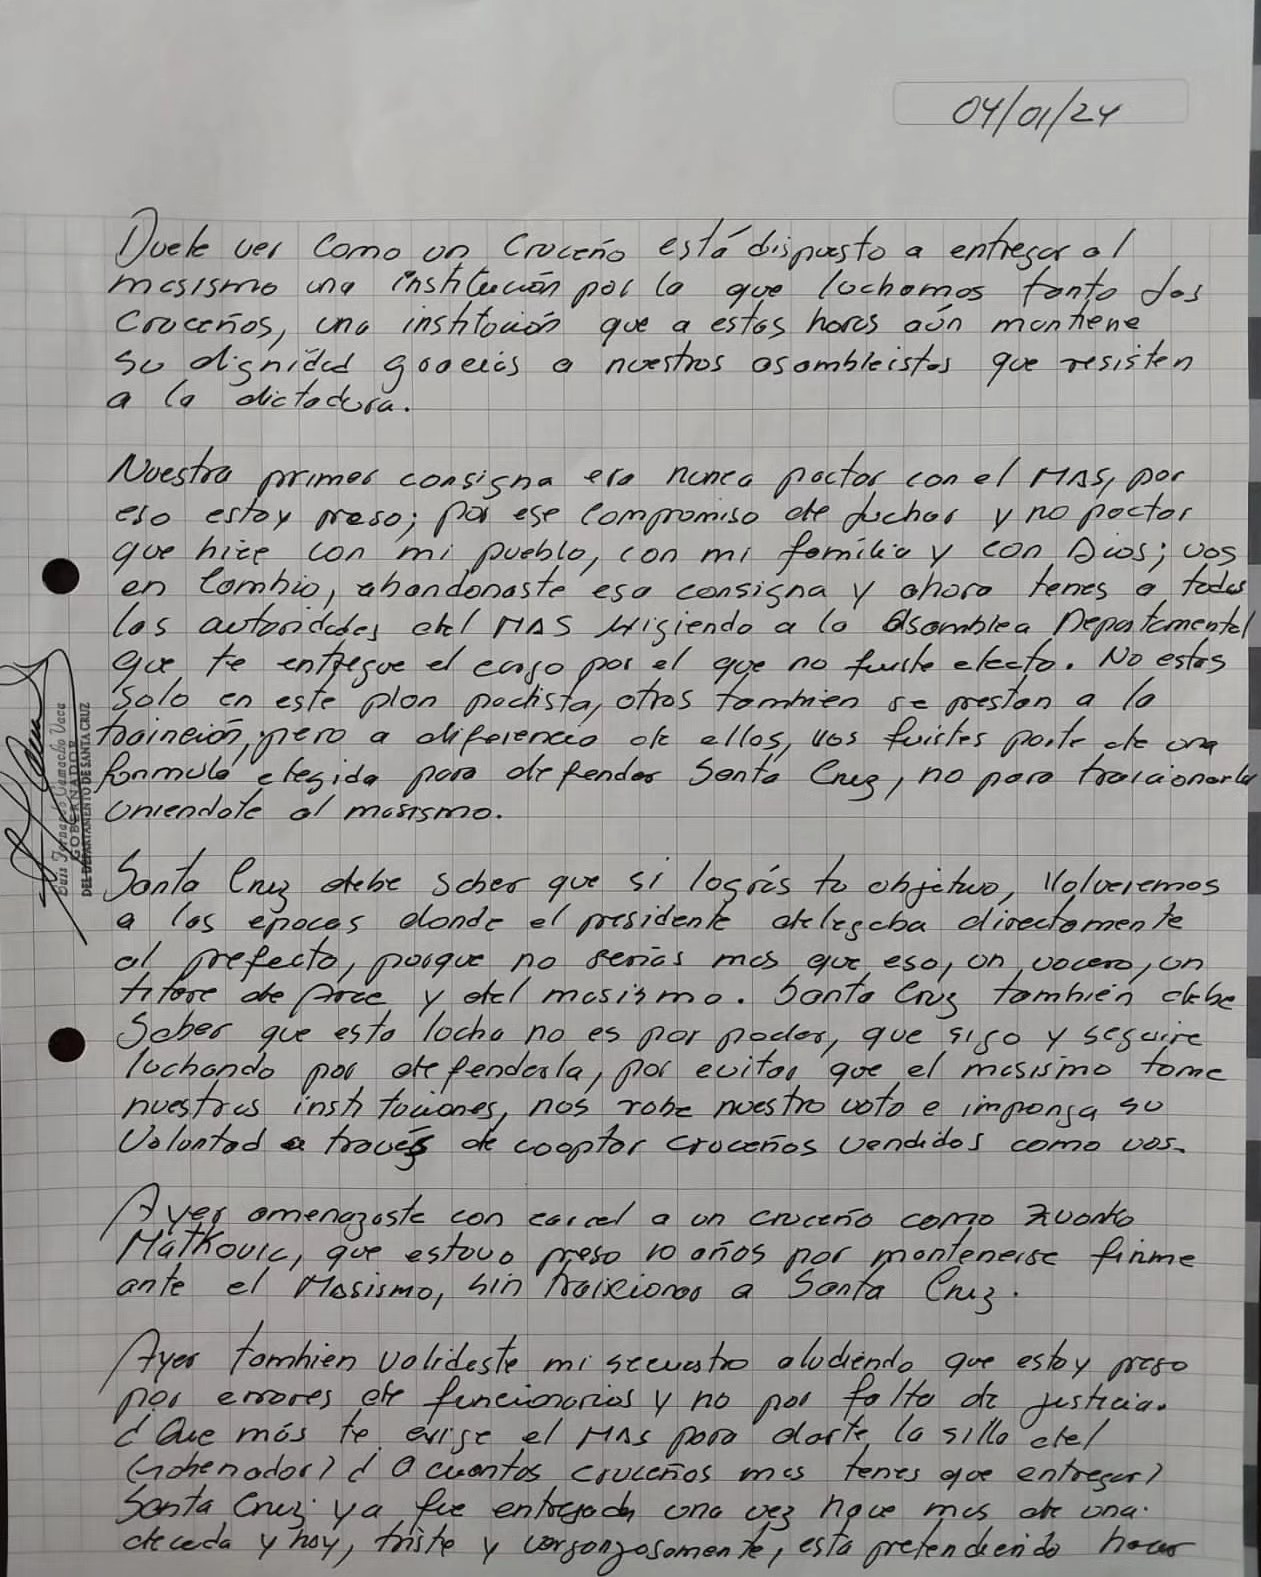 04/01/24
Duele ver como un Cruceño está dispuesto a entregar al
masismo una institución por la que luchamos tanto los
Cruceños, una institución que a estas horas aún mantiene
su dignidad gracias a nuestros asambleistas que resisten
a la dictadura.
Nuestra primer consigna era nunca pactar con el MAS, por
eso estoy preso; por ese compromiso de luchar y no pactar
que hice con mi pueblo, con mi familia y con Dios; vos
en Cambio, abandonaste esa consigna y ahora tenes a todas
las autoridades del MAS exigiendo a la Asamblea Departamental
que te entregue el cargo por el que no fuiste electo. No estas
solo en este plan pactista, otros tambien se prestan a la
traineión, pero a diferencia de ellos, vos fuistes parte de una
formula elegida para defender Santa Cruz, no para traicionarla
uniendote al masismo.
Santa Cruz debe saber que si lográs tu objetivo, Volveremos
a las epocas donde el presidente delegaba directamente
al prefecto, porque no serías mas que eso, un vocero, un
titere de Arce y del masismo. Santa Cruz también debe
Saber que esta lucha no es por poder, que sigo y seguire
luchando por defenderla, por evitar que el masismo tome
nuestras instituciones, nos robe nuestro voto e imponga su
Voluntad a través de cooptar cruceños vendidos como vos.
Ayer amenazaste con carcel a un cruceño como Zvonko
Matkovic, que estuvo preso 10 años por mantenerse firme
ante el Masismo, sin traicionar a Santa Cruz.
Ayer tambien valideste mi secuestro aludiendo que estoy preso
por errores de funcionarios y no por falta de justicia.
¿Que más te exige el MAS para darte la silla del
Gobernador? ¿A cuantos cruceños mas tenes que entregar?
Santa Cruz ya fue entregada una vez hace mas de una
decada y hoy, triste y vergonzosamente, esta pretendiendo hacer
Luis Fernando Camacho Vaca
GOBERNADOR
DEL DEPARTAMENTO DE SANTA CRUZ